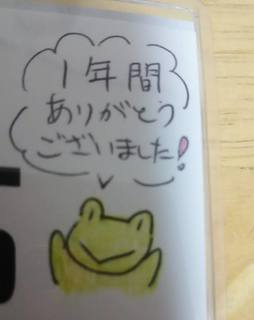 1年間
ありがとう
ございました!